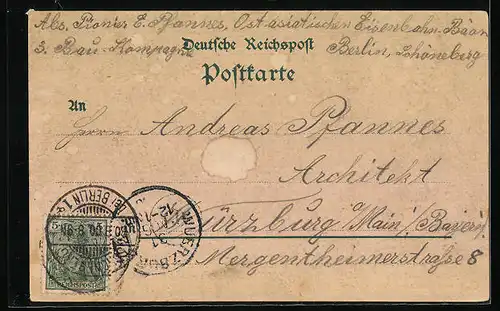 Abs. Pionier E. Pfannes, Ost-asiatischen Eisenbahn-Bau
3. Bau-Kompagnie Berlin, Schöneberg
Deutsche Reichspost
Postkarte
An
Herrn Andreas Pfannes
Architekt
Würzburg a/Main (Bayern)
Mergentheimerstraße 8
BERLIN
WUERZBURG